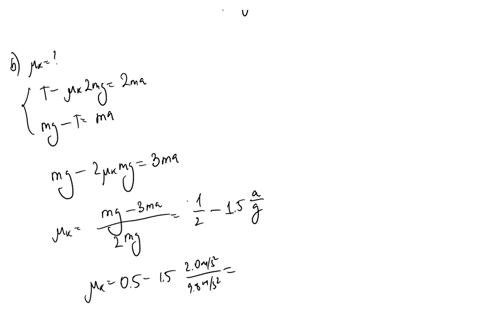 b) μk=?
T - μk2mg = 2ma
mg - T = ma
mg - 2μkmg = 3ma
μk = (mg - 3ma)/(2mg) = 1/2 - 1.5 a/g
μk = 0.5 - 1.5 (2.0 m/s²)/(9.8 m/s²) =